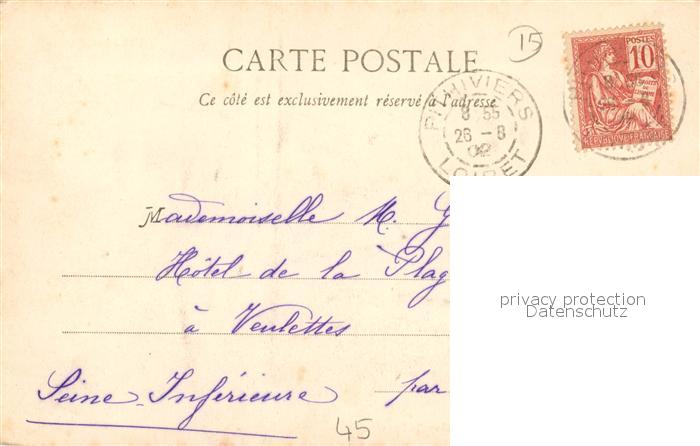 15
CARTE POSTALE
Ce côté est exclusivement réservé à l'adresse
POSTES
10
DROITS DE L'HOMME
REPUBLIQUE FRANÇAISE
PITHIVIERS
8 55
26 - 8
02
LOIRET
Mademoiselle M. G
Hôtel de la Plag
à Veulettes
Seine-Inférieure par
45
privacy protection
Datenschutz